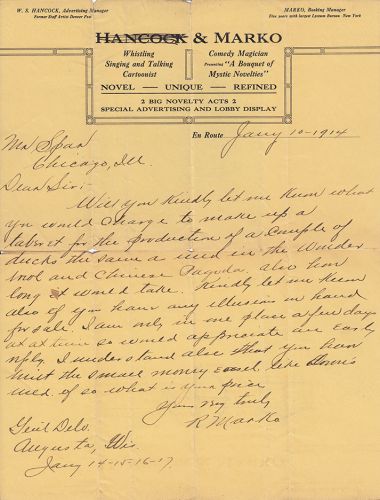 W. S. HANCOCK, Advertising Manager
Former Staff Artist Denver Post
MARKO, Booking Manager
Five years with largest Lyceum Bureau New York
HANCOCK & MARKO
Whistling
Singing and Talking
Cartoonist
Comedy Magician
Presenting "A Bouquet of
Mystic Novelties"
NOVEL — UNIQUE — REFINED
2 BIG NOVELTY ACTS 2
SPECIAL ADVERTISING AND LOBBY DISPLAY
En Route Jany 10-1914
Mr
Chicago, Ill.
Dear Sir:-
Will you kindly let me know what
you would charge to make up a
for the production of a couple of
ducks the same as used in the
and Chinese Pagoda. also how
long it would take. Kindly let me know
also if you have any illusion on hand
for sale. I am only in one place a few days
at a time so would appreciate an early
reply. I understand also that you have
the small money like
used. if so what is your price
Yours very truly
R Marko
Genl Delv.
Augusta, Wis.
Jany 14-15-16-17.